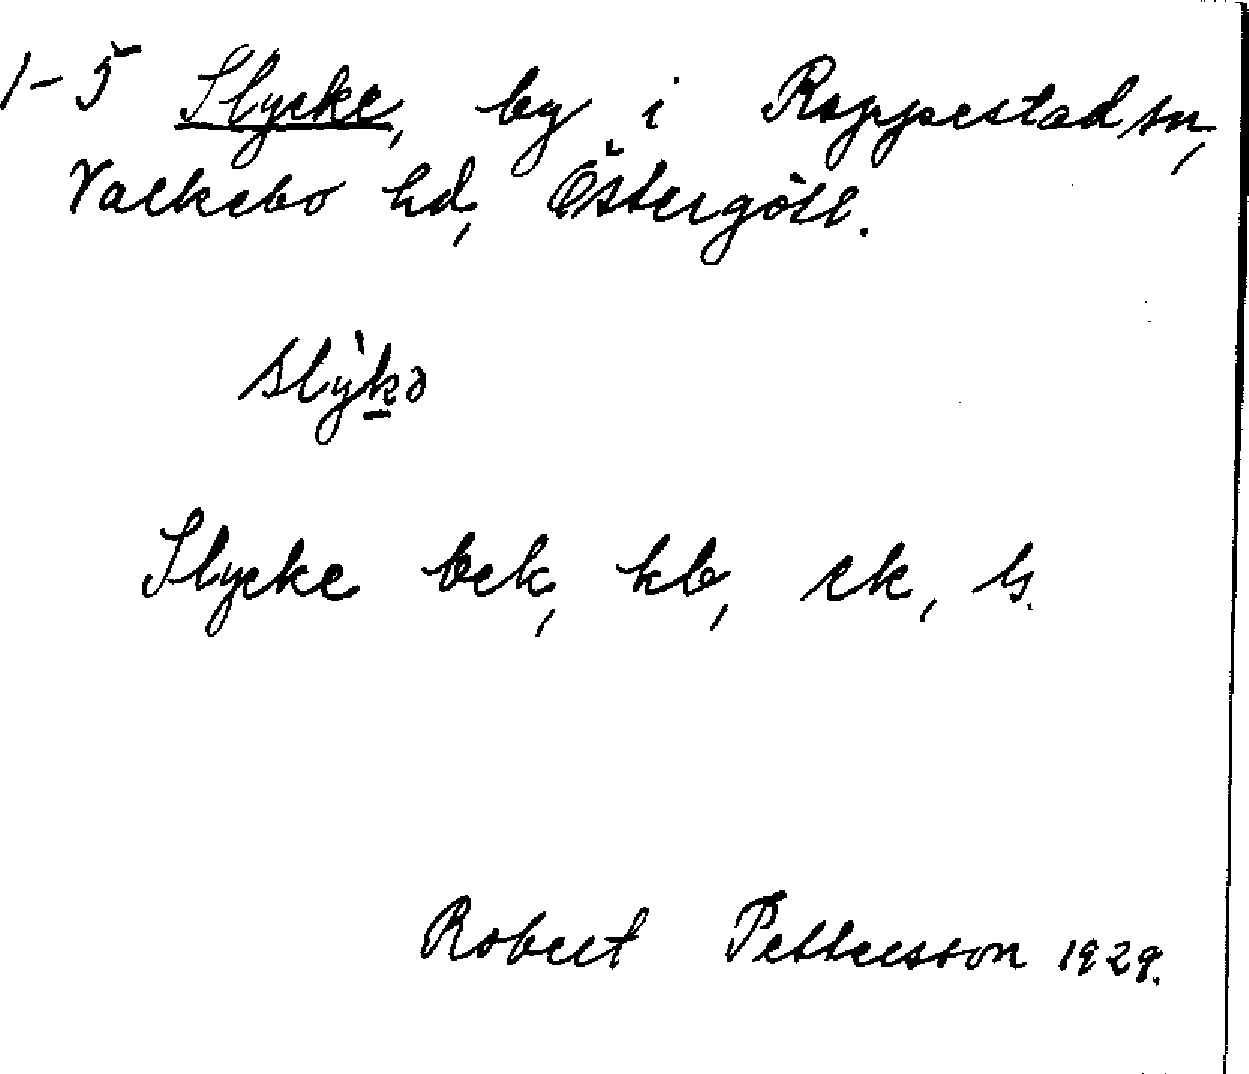 1-5 Slycke, by i Rappestad sn,
Valkebo hd, Östergötl.
slỳkə
Slycke bek, kb, ek, ls.
Robert Pettersson 1929.